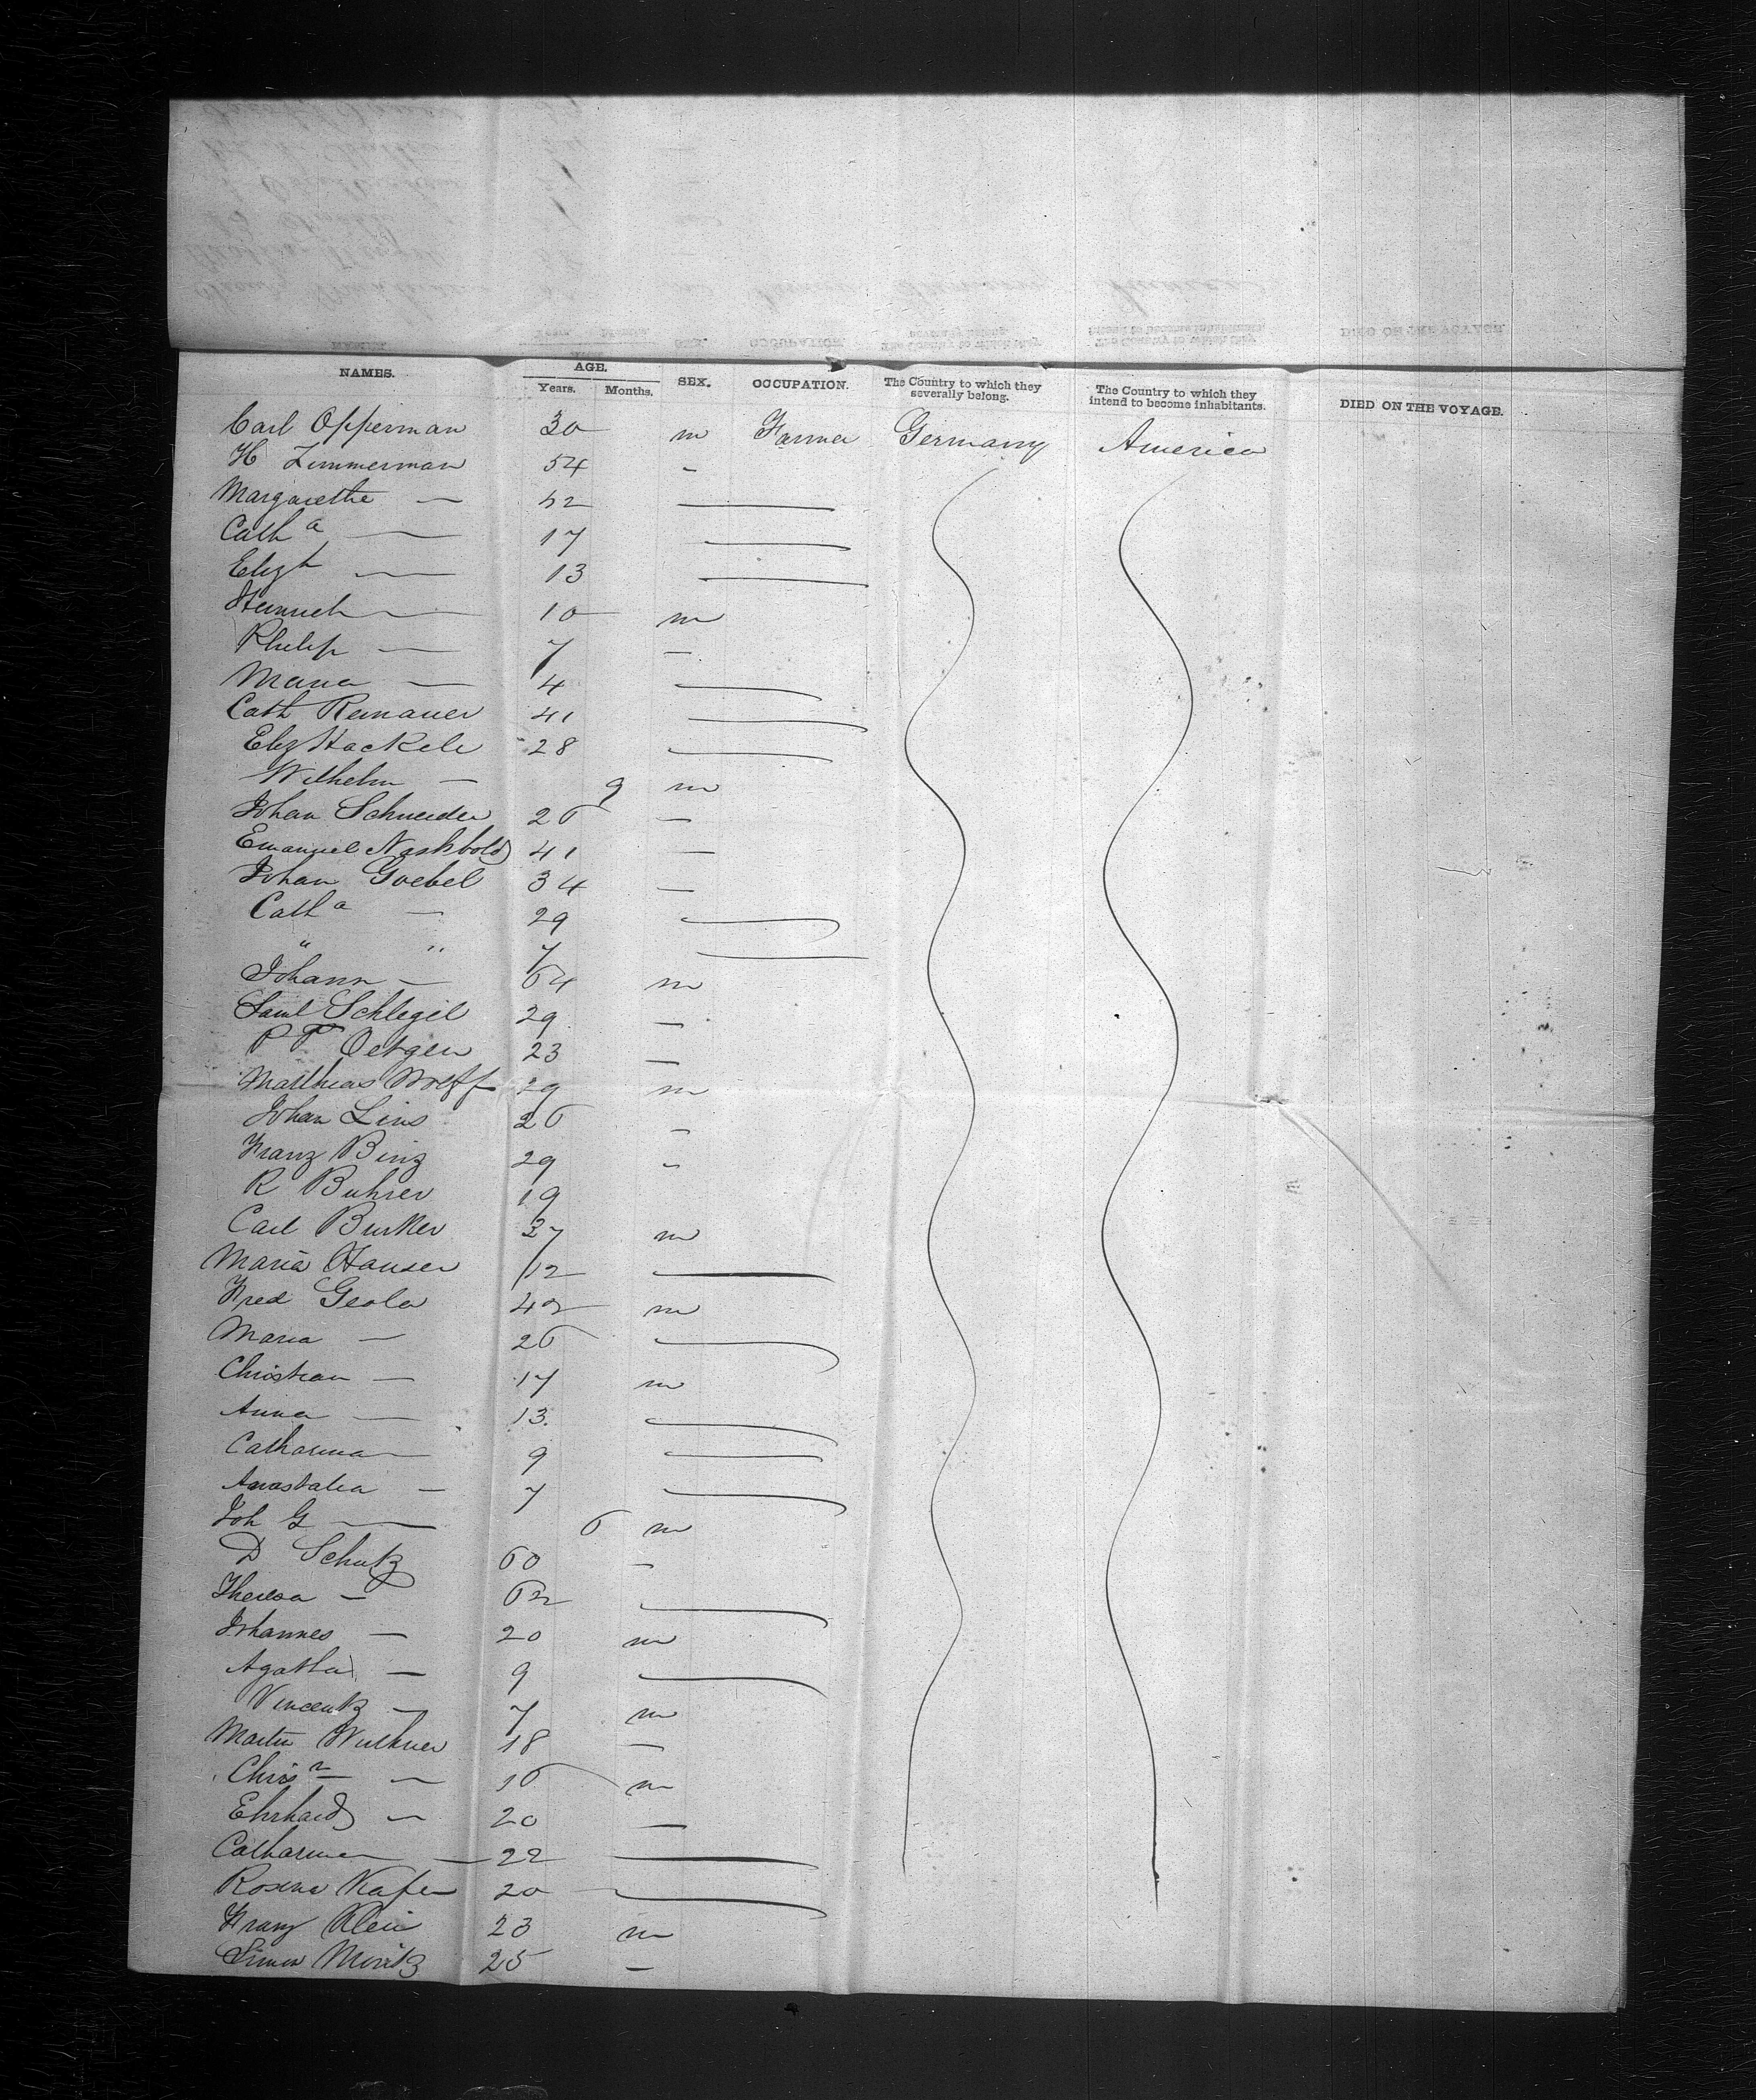 NAMES. AGE. Years. Months. SEX. OCCUPATION. The Country to which they severally belong. The Country to which they intend to become inhabitants. DIED ON THE VOYAGE.
Carl Opperman 30 m Farmer Germany America
H Zimmerman 54 -
Margarethe — 42
Cath a — 17
Elizh — 13
Heinrich — 10 m
Philip — 7 —
Maria — 4
Cath Remauer 41
Eliz Hackele 28
Wilhelm — 9 m
Johan Schneider 26 —
Emanuel 41 —
Johan Goebel 34 —
Cath a — 29
" " 7
Johann — 64 m
Saml Schlegel 29 —
P F Oetgen 23 —
Matthias Wolff 29 m
Johan Lins 26 -
Franz Binz 29 -
R Buhrer 19
Carl Burker 37 m
Maria Hauser 12
Fred Geola 42 m
Maria — 26
Christian — 17 m
Anna — 13
Catharina — 9
Anastatia — 7
Joh G — 6 m
D Schutz 60 —
Theresa — 62
Johannes — 20 m
Agatha — 9
Vincentz — 7 m
Martin 18 —
Chris n — 16 m
Ehrhard — 20 —
Catharina — 22
Rosina Kafer 20
Franz Klein 23 m
Simon Moritz 25 —